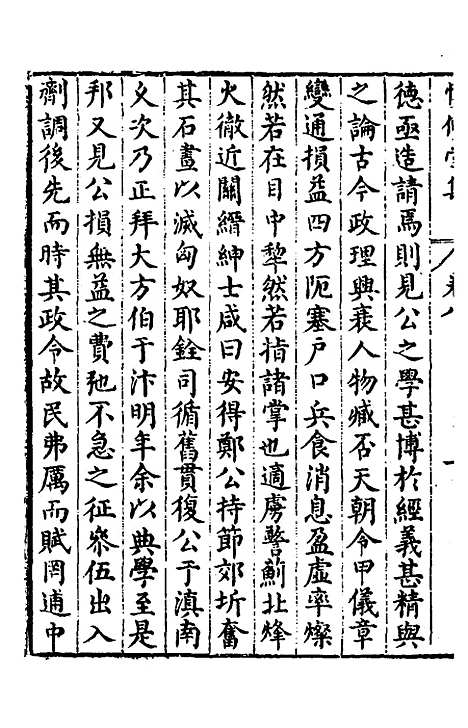 德亟造請焉則見公之學甚博於經義甚精與
之論古今政理興衰人物臧否天朝令甲儀章
變通損益四方阨塞戶口兵食消息盈虛率燦
然若在目中犂然若指諸掌也適虜警薊北烽
火徹近關縉紳士咸曰安得鄭公持節郊圻奮
其石畫以滅匈奴耶銓司循舊貫復公于滇南
乂次乃正拜大方伯于汴明年余以典學至是
邦又見公損無益之費弛不急之征參伍出入
劑調後先而時其政令故民弗厲而賦罔逋中